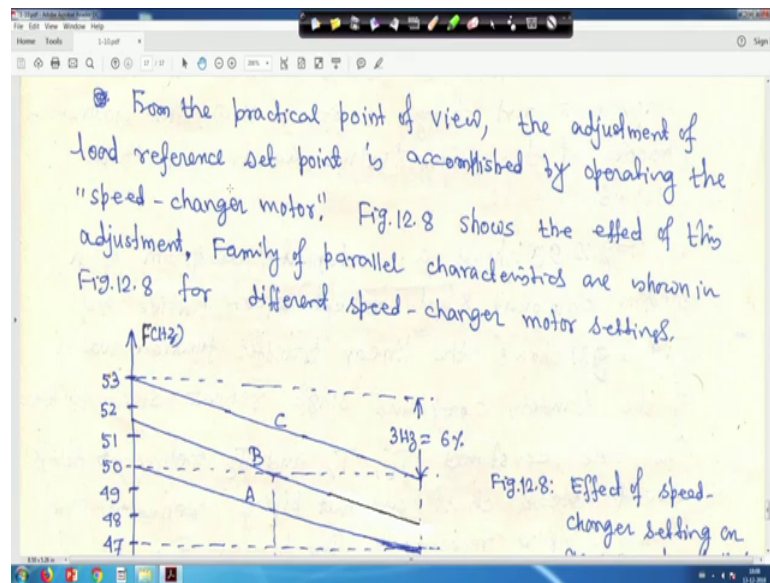 1-10.pdf - Adobe Acrobat Reader DC
File Edit View Window Help
Home Tools 1-10.pdf × Sign
17 / 17
From the practical point of view, the adjustment of
load reference set point is accomplished by operating the
"speed-changer motor." Fig.12.8 shows the effect of this
adjustment, Family of parallel characteristics are shown in
Fig.12.8 for different speed-changer motor settings.
F(HZ)
53
52
51
50
49
48
47
C
B
A
3HZ = 6%
Fig.12.8: Effect of speed-
changer setting on